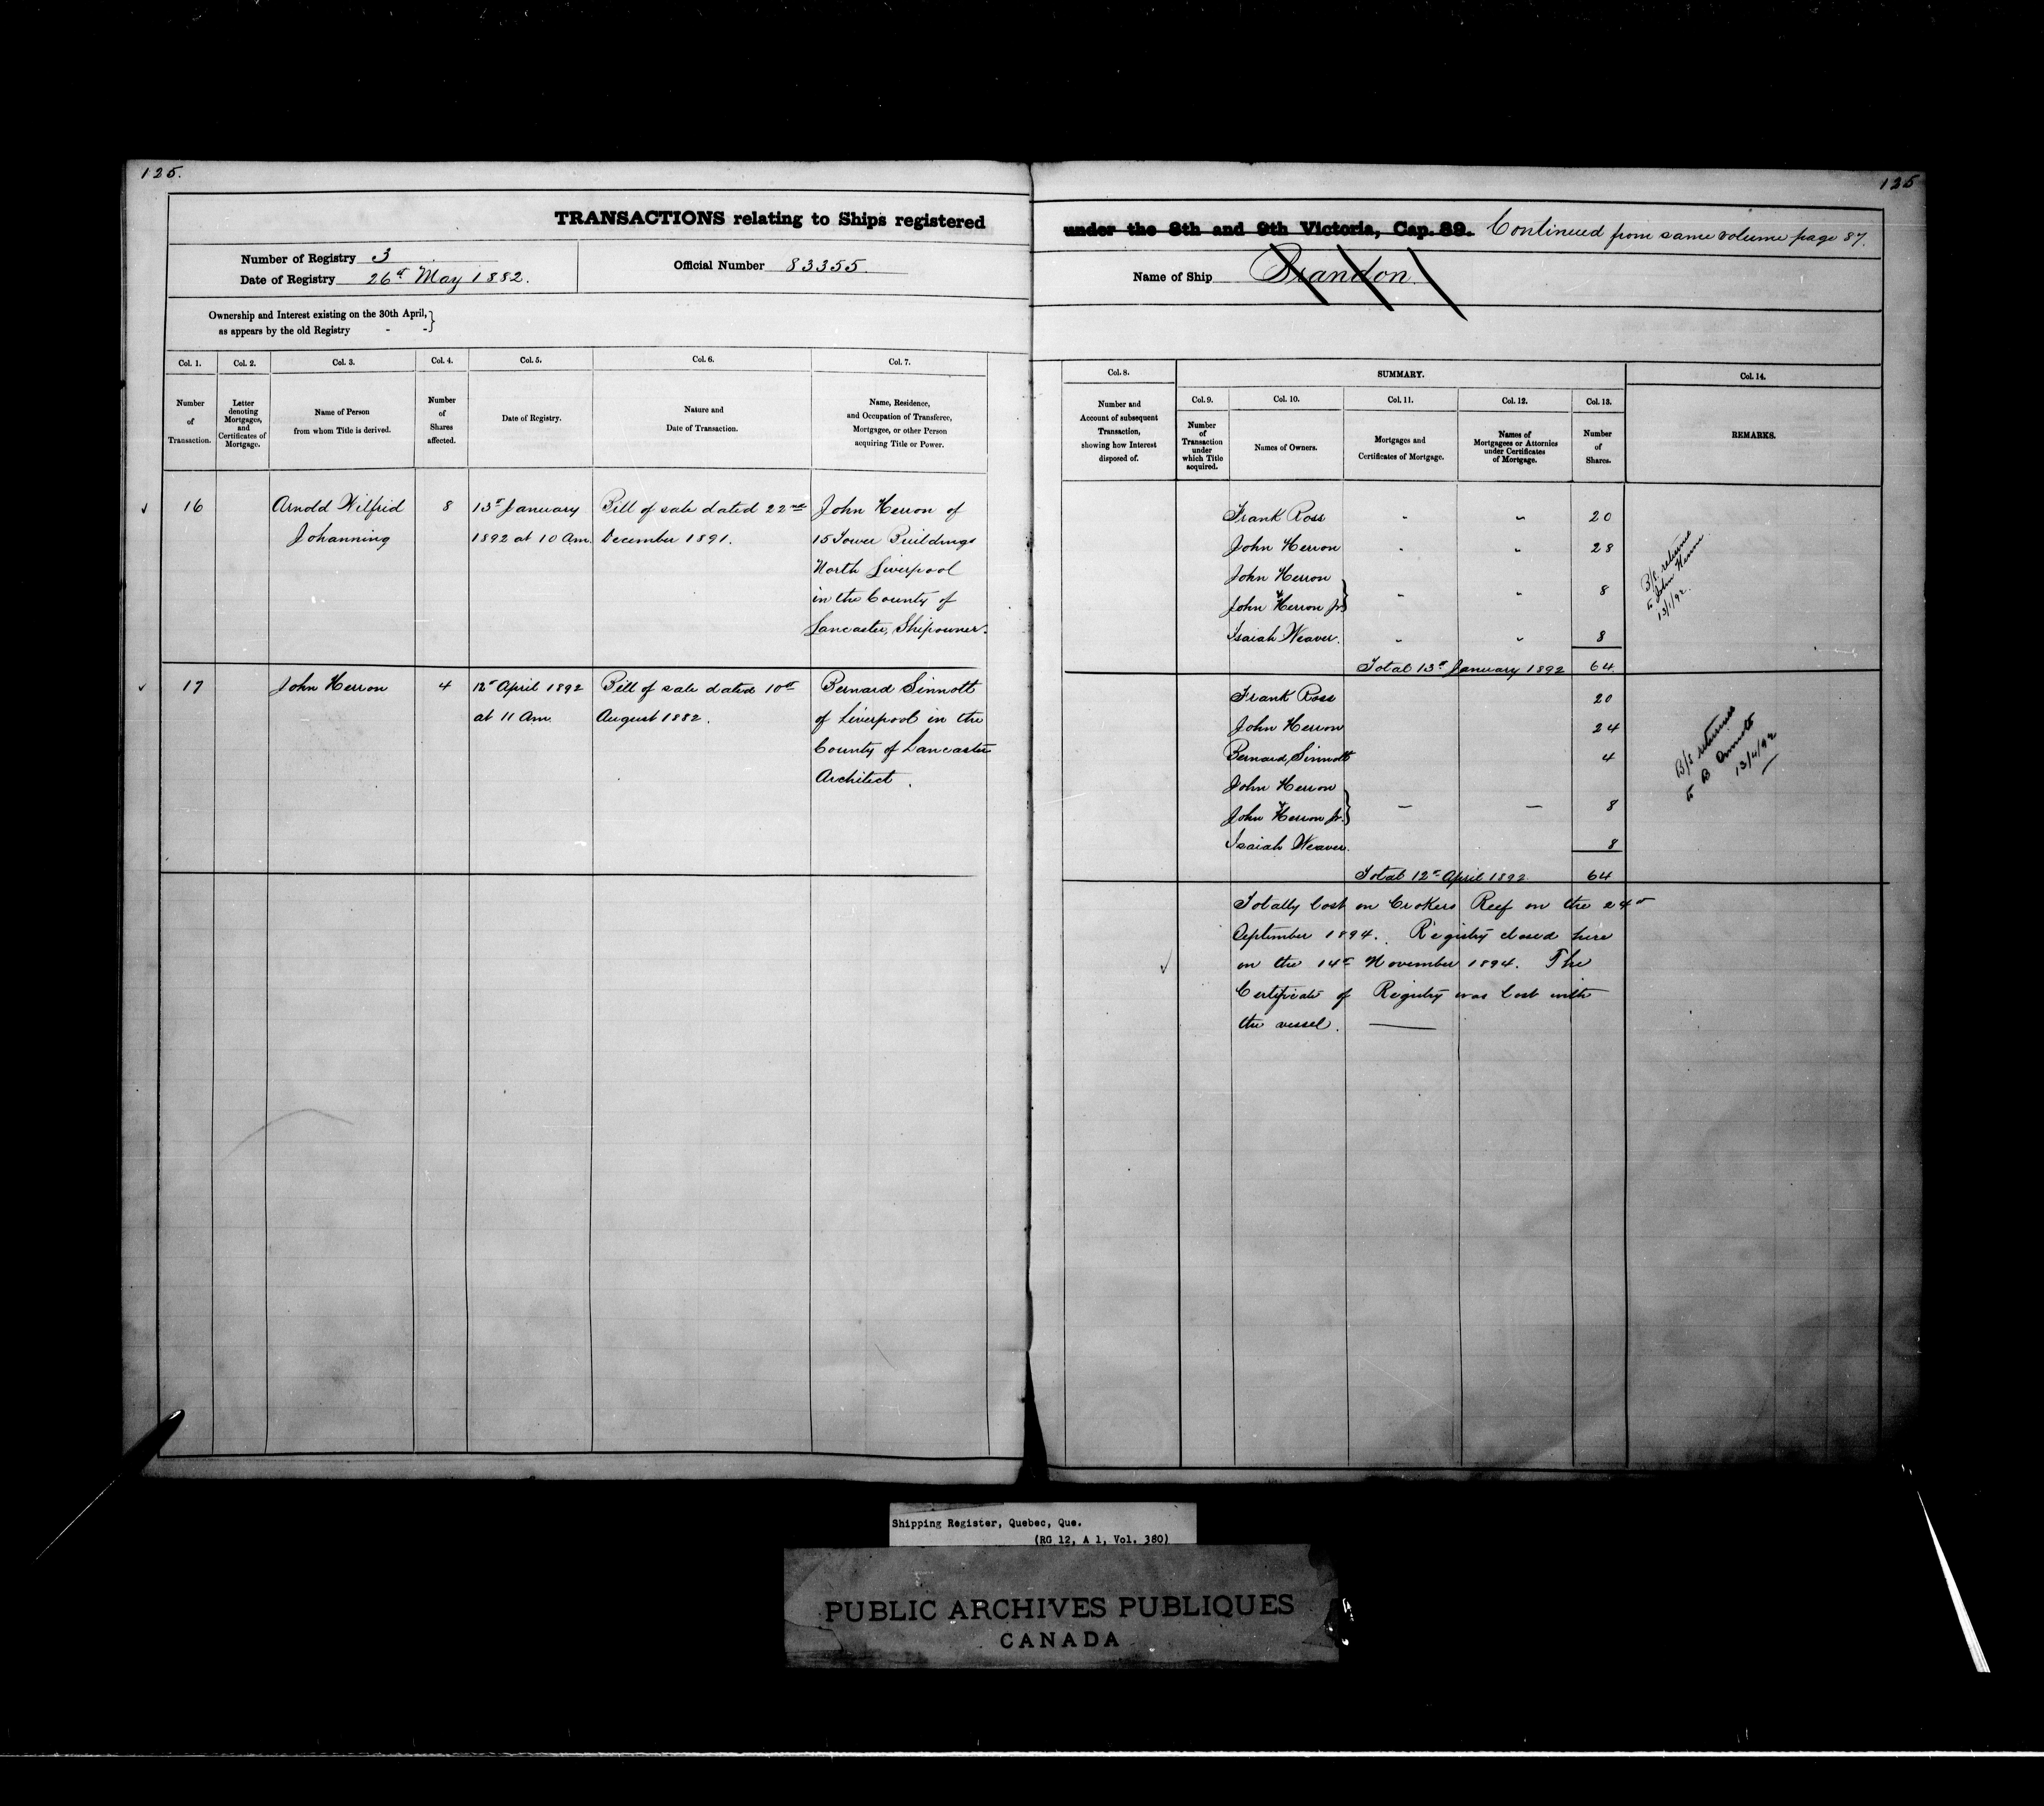 125.
125
TRANSACTIONS relating to Ships registered under the 8th and 9th Victoria, Cap. 89. Continued from same volume page 87.
Number of Registry 3
Date of Registry 26th May 1882.
Official Number 83355
Name of Ship Brandon
Ownership and Interest existing on the 30th April,
as appears by the old Registry - -}
Col. 1.
Number
of
Transaction.
Col. 2.
Letter
denoting
Mortgages,
and
Certificates of
Mortgage.
Col. 3.
Name of Person
from whom Title is derived.
Col. 4.
Number
of
Shares
affected.
Col. 5.
Date of Registry.
Col. 6.
Nature and
Date of Transaction.
Col. 7.
Name, Residence,
and Occupation of Transferee,
Mortgagee, or other Person
acquiring Title or Power.
Col. 8.
Number and
Account of subsequent
Transaction,
showing how Interest
disposed of.
SUMMARY.
Col. 9.
Number
of
Transaction
under
which Title
acquired.
Col. 10.
Names of Owners.
Col. 11.
Mortgages and
Certificates of Mortgage.
Col. 12.
Names of
Mortgagees or Attornies
under Certificates
of Mortgage.
Col. 13.
Number
of
Shares.
Col. 14.
REMARKS.
16
Arnold Wilfrid
Johanning
8
13th January
1892 at 10 Am.
Bill of sale dated 22nd
December 1891.
John Herron of
15 Tower Buildings
North Liverpool
in the County of
Lancaster, Shipowner.
Frank Ross " " 20
John Herron " " 28
John Herron
& John Herron Jr} " " 8
Isaiah Weaver. " " 8
Total 13th January 1892 64
B/s returned
to John Herron
13/1/92.
17
John Herron
4
12th April 1892
at 11 Am.
Bill of sale dated 10th
August 1882.
Bernard Sinnott
of Liverpool in the
County of Lancaster
Architect.
Frank Ross 20
John Herron 24
Bernard Sinnott 4
John Herron
& John Herron Jr.} — — 8
Isaiah Weaver. 8
Total 12th April 1892 64
B/s returned
to B Sinnott
13/4/92
Totally lost on Crokers Reef on the 24th
September 1894. Registry closed here
on the 14th November 1894. The
Certificate of Registry was lost with
the vessel.
Shipping Register, Quebec, Que.
(RG 12, A 1, Vol. 380)
PUBLIC ARCHIVES PUBLIQUES
CANADA